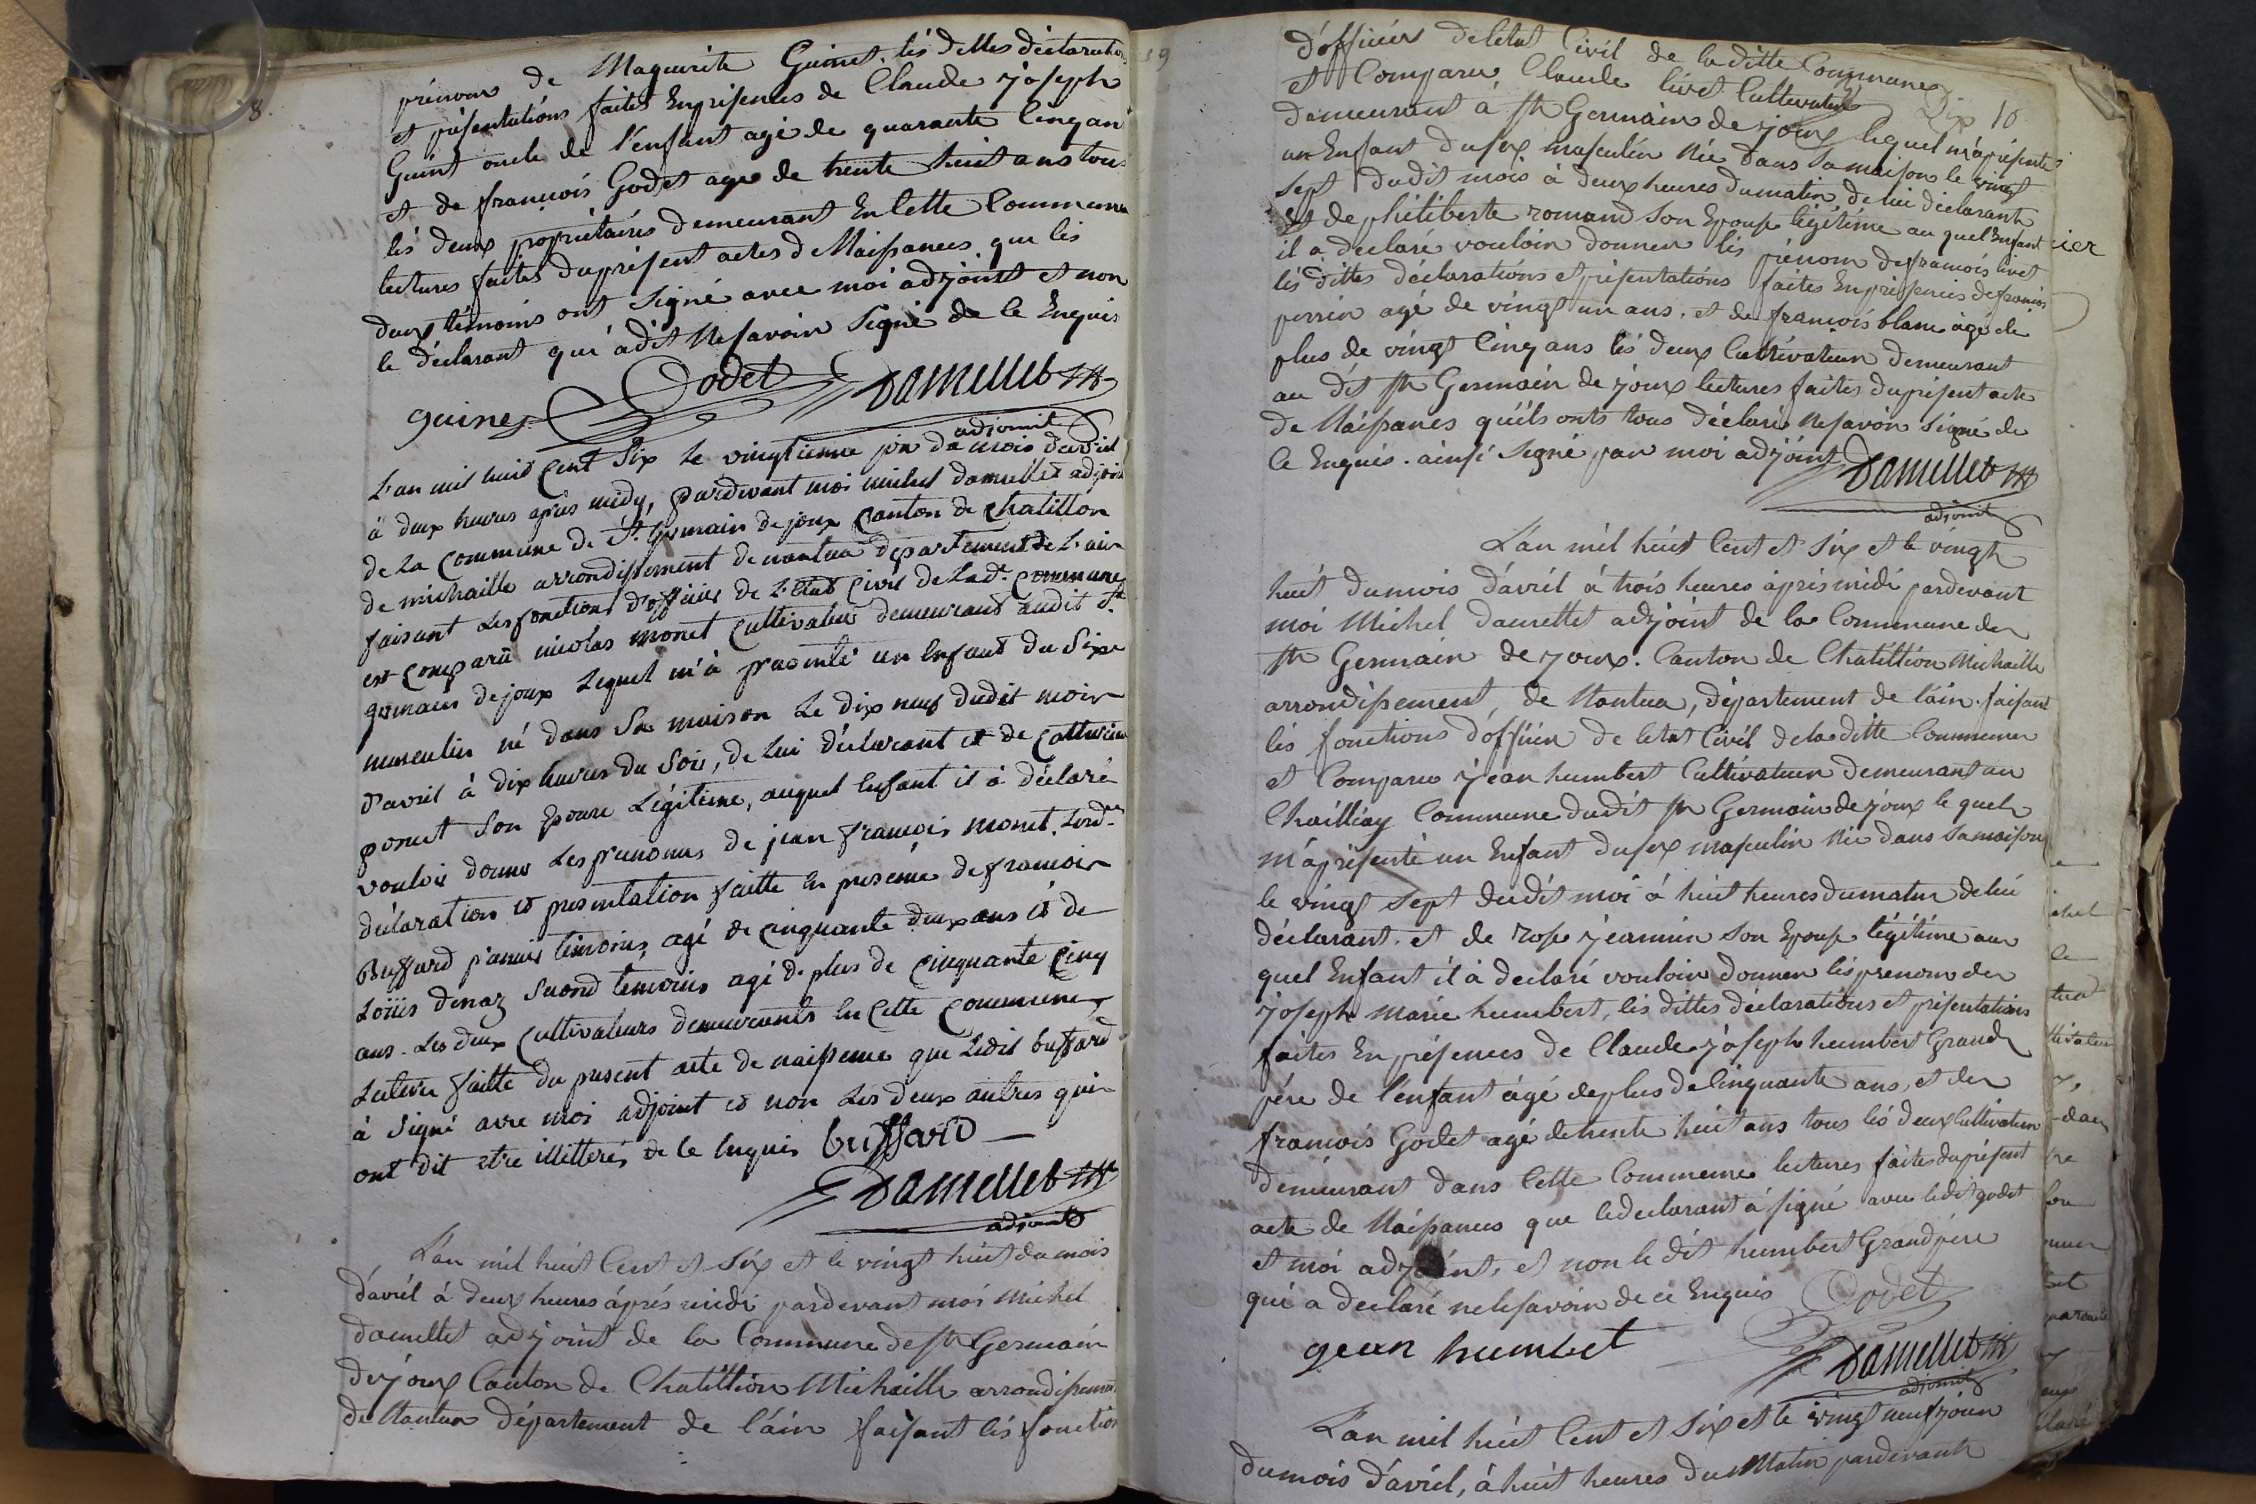 8.
prénoms de Maguirite Guinet. lés dittes déclarations
et présentations faites Enprésences de Claude joseph
Guint oncle de l'enfant agé de quarante Cinq an
et de francois Godet age de trente huit ans tous
lés deux propriétairés demeurant En Cette Commune
lectures faites du présent actes de Naissances que lés
deux témoins ont Signé avec moi adjoint et non
le déclarant qui à dit Ne savoir Signé de Ce Enquis
guines Godet Damellet
adjoint
L'an mil huit Cent Six le vingtieme jour du mois d'avril
à deux heures après midy, pardevant moi michel damellet adjoint
de la Commune de St. germain de joux Canton de Chatillon
de michaille arrondissement de nantua departement de L'ain
faisant Les fonctions d'officier de L'Etat Civil de Lad.e Commune
est Comparu nicolas monet Cultivateur demeurant audit St.
germain de joux Lequel m'à présenté un Enfant du Sixe
masculin né dans Sa maison Le dix neuf dudit mois
d'avril à dix heures du Soir, de Lui déclarant et de Catherine
ponet Son Epouse Légitime, auquel Enfant il à déclaré
vouloir donner Les prenoms de jean francois monet. Lesd.es
déclaration et presentation faitte En présence de francois
Buffard p'amier témoins, agé de Cinquante deux ans et de
Loüis denaz Second temoins agé de plus de Cinquante Cinq
ans. Les deux Cultivateurs demeurants En Cette Commune
Lecture faitte du present acte de naissance que Ledit buffard
à Signé avec moi adjoint et non Les deux autres qui
ont dit etre illitterés de Ce Enquis buffard
Damellet
adjoint
L'an mil huit Cent et Six et le vingt huit du mois
d'avril à deux heures áprés midi pardevant moi Michel
damellet adjoint de la Commune de St Germain
de joux Canton de Chatillion Michaille arrondissement
de Nantua département de l'ain faisant lés fonction
19
d'officier de létat Civil de la ditte Commune
et Comparu Claude livet Cultivateur
Dix 10
demeurant à St Germain de joux lequel m'à présenté
un Enfant du sex masculin Née dans Sa maison le vingt
Sept dudit mois à deux heures du matin, de lui déclarant
et de philiberte romand Son Epouse légitime au quel Enfant
il à déclaré vouloir donner lés prénom de francois livet
lés dittes déclarations et présentations faites Enprésences de francois
perrin agé de vingt un ans. et de francois blanc àgé de
plus de vingt Cinq ans lés deux Cultivateur demeurant
au dit St Germain de joux lectures faites du présent acte
de Naissances qu'ils onts tous déclaré Ne savoir Signé de
Ce Enquis. ainsi Signé par moi adjoint Damellet
adjoint
L'an mil huit Cent et Six et le vingt
huit du mois d'avril à trois heures àprés midi pardevant
moi Michel damellet adjoint de la Commune de
St Germain de joux. Canton de Chatillion Michaille
arrondissement, de Nantua, département de l'ain. faisant
lés fonctions d'officier de létat Civil de la ditte Commune
et Comparu jean humbert Cultivateur demeurant au
Chailliay Commune dudit St Germain de joux le quel
m'à présenté un Enfant du sex masculin Née dans Sa maison
le vingt Sept dudit moi à huit heures du matin de lui
déclarant. et de rose jeannin Son Epouse légitime au
quel Enfant il à déclaré vouloir donner lés prenom de
joseph marie humbert, lés dittes déclarations et présentations
faites En présences de Claude joseph humbert Grand
pére de l'enfant àgé de plus de Cinquante ans, et de
francois Godet agé de trente huit ans tous lés deux Cultivateur
demeurant dans Cette Commune lectures faites du présent
acte de Naissances que le declarant à signé avec ledit godet
et moi adjoint, et non le dit humbert Grand pére
qui a declaré ne le savoir de ce Enquis Godet
gean humbet Damellet
adjoint
L'an mil huit Cent et Six et le vingt neuf jour
du mois d'avril, à huit heures du Matin pardevant